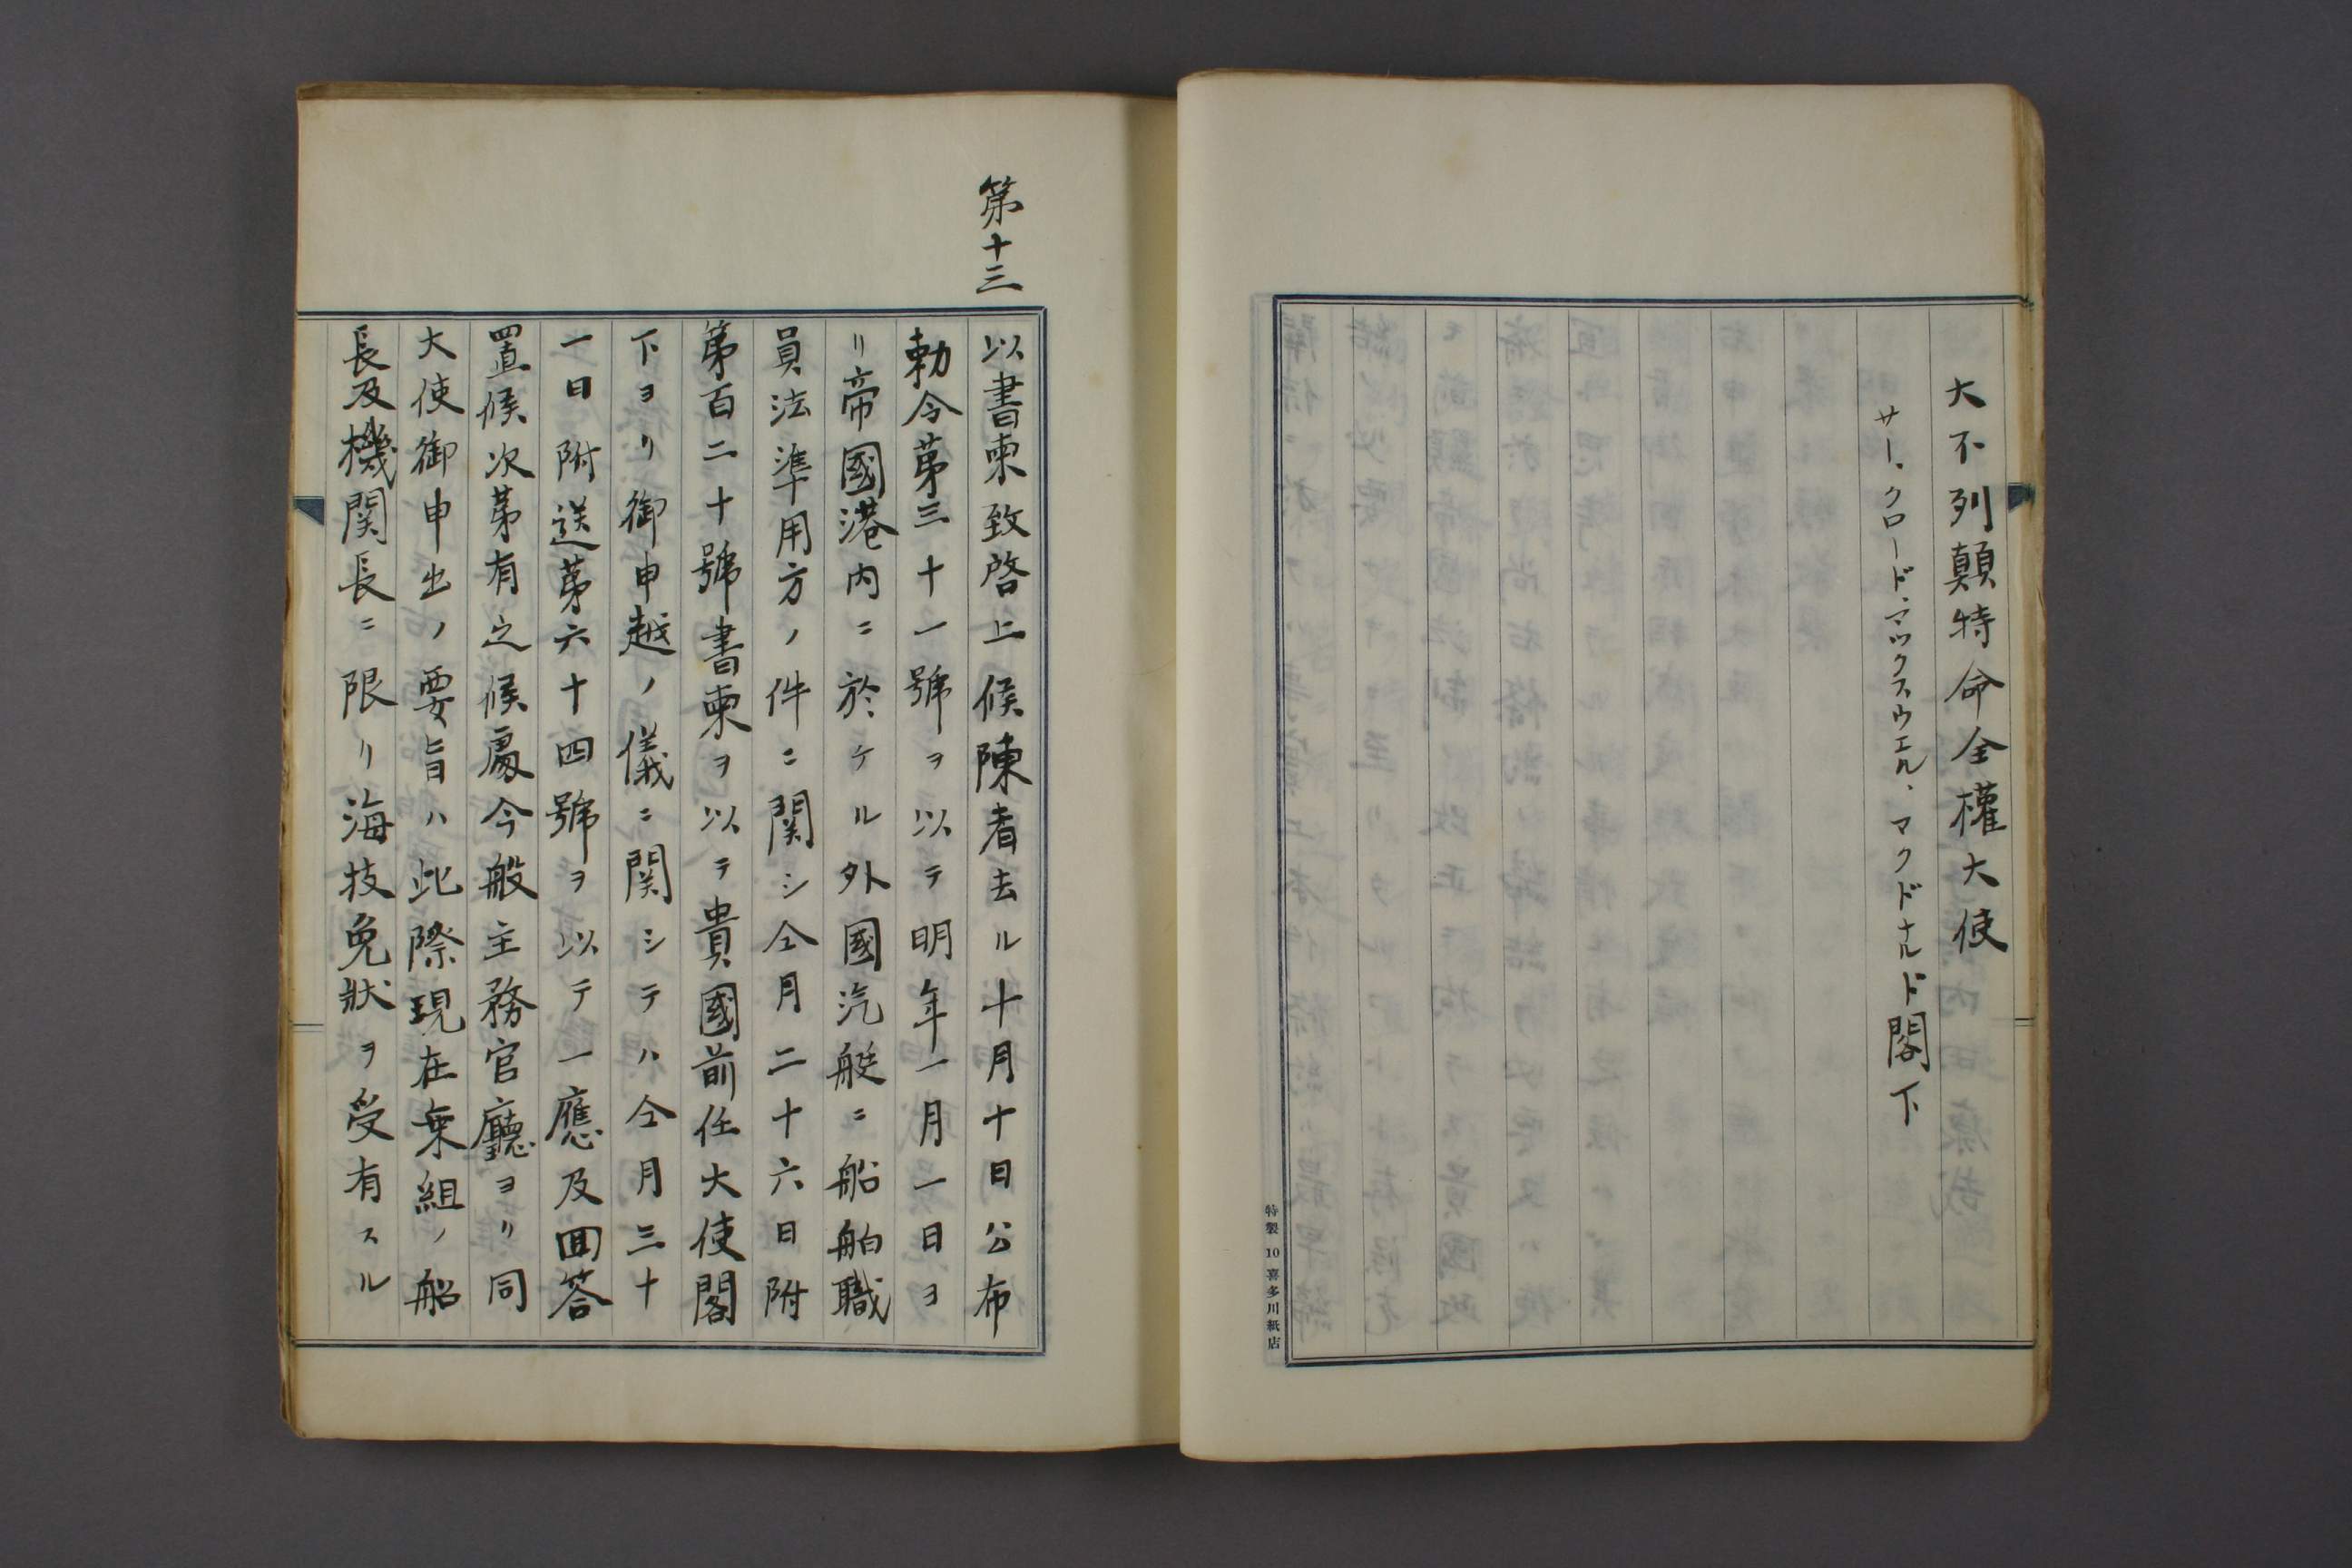 大不列顛特命全權大使
サー、クロード、マックスウエル、マクドナルド閣下
特製 10 喜多川紙店
第十三
以書柬致啓上候陳者去ル十月十日公布
勅令第三十一號ヲ以テ明年一月一日ヨ
リ帝國港内ニ於ケル外國汽艇ニ船舶職
員法準用方ノ件ニ関シ仝月二十六日附
第百二十號書柬ヲ以テ貴國前任大使閣
下ヨリ御申越ノ儀ニ関シテハ仝月三十
一日附送第六十四號ヲ以テ一應及囬答
置候次第有之候處今般主務官廳ヨリ同
大使御申出ノ要旨ハ此際現在乗組ノ船
長及機関長ニ限リ海技免狀ヲ受有スル